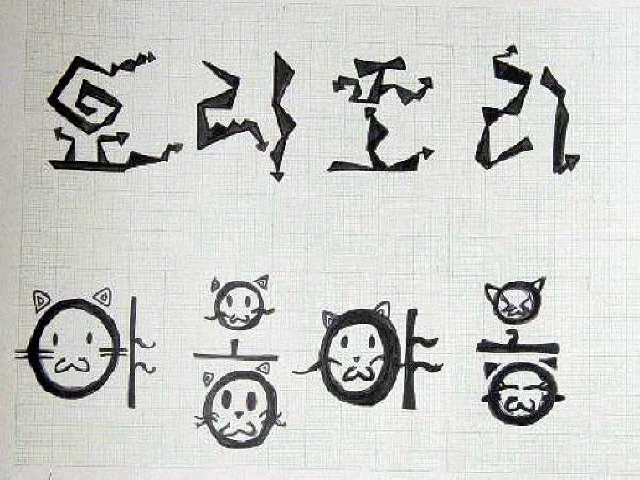 요리조리
야옹야옹